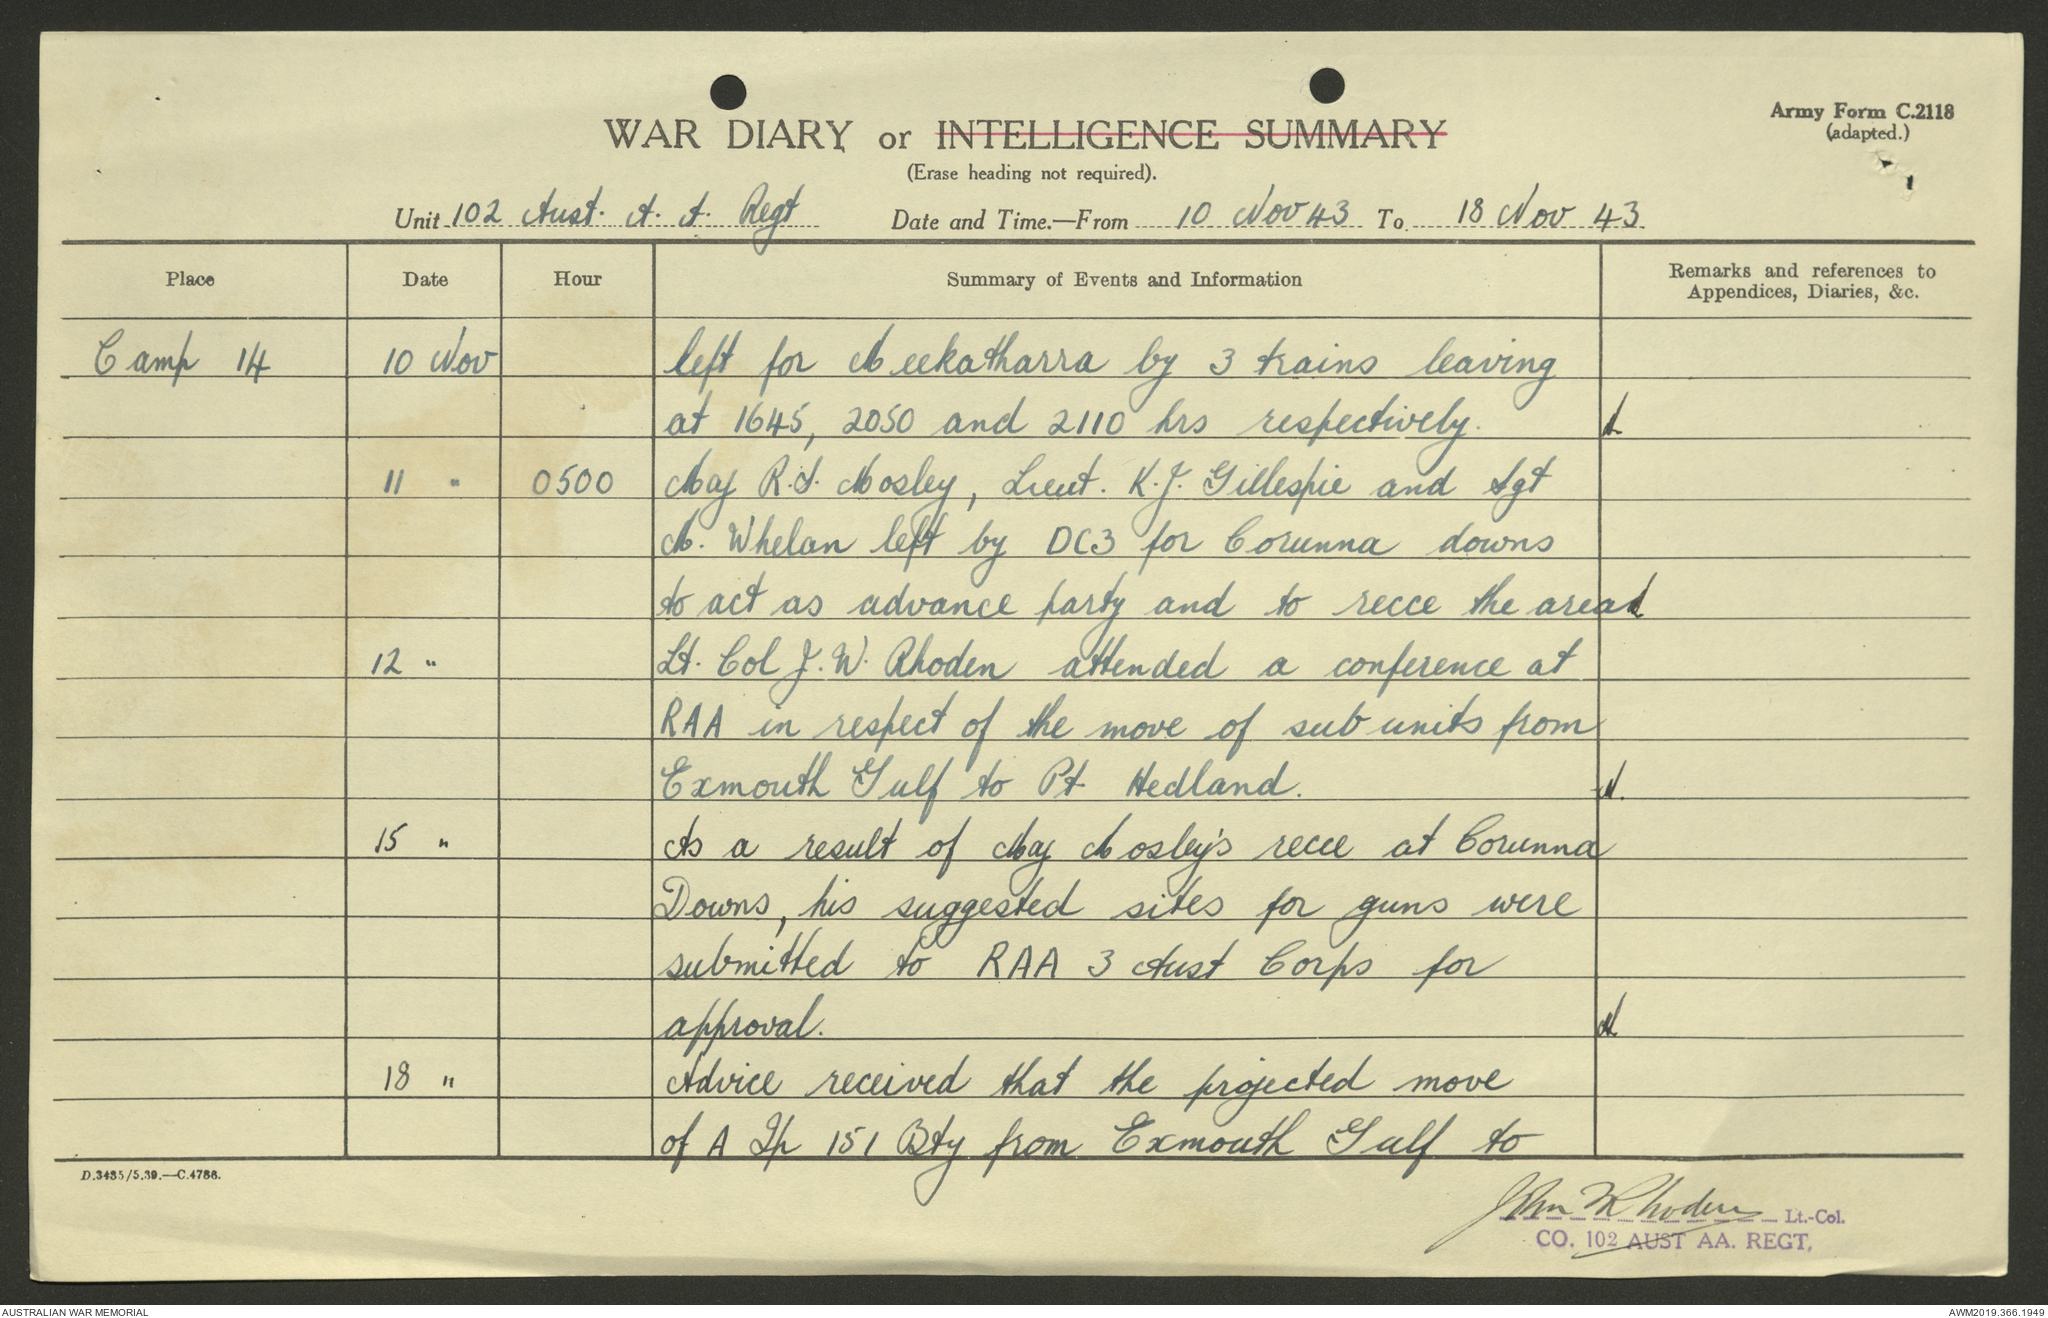 Army Form C.2118
(adapted.)
WAR DIARY or INTELLIGENCE SUMMARY
(Erase heading not required).
Unit 102 Aust. A. A. Regt Date and Time.—From 10 Nov 43 To 18 Nov 43
Place Date Hour Summary of Events and Information Remarks and references to Appendices, Diaries, &c.
Camp 14 10 Nov left for Meekatharra by 3 trains leaving
at 1645, 2050 and 2110 hrs respectively.
11 " 0500 Maj R.S. Mosley, Lieut. K.J. Gillespie and Sgt
M. Whelan left by DC3 for Corunna downs
to act as advance party and to recce the area
12 " Lt. Col J. W. Rhoden attended a conference at
RAA in respect of the move of sub units from
Exmouth Gulf to Pt. Hedland.
15 " As a result of Maj Mosley's recce at Corunna
Downs, his suggested sites for guns were
submitted to RAA 3 Aust Corps for
approval.
18 " Advice received that the projected move
of A Tp 151 Bty from Exmouth Gulf to
D.3435/5.39.—C.4788.
John W Rhoden Lt.-Col.
CO. 102 AUST AA. REGT.
AUSTRALIAN WAR MEMORIAL
AWM2019.366.1949